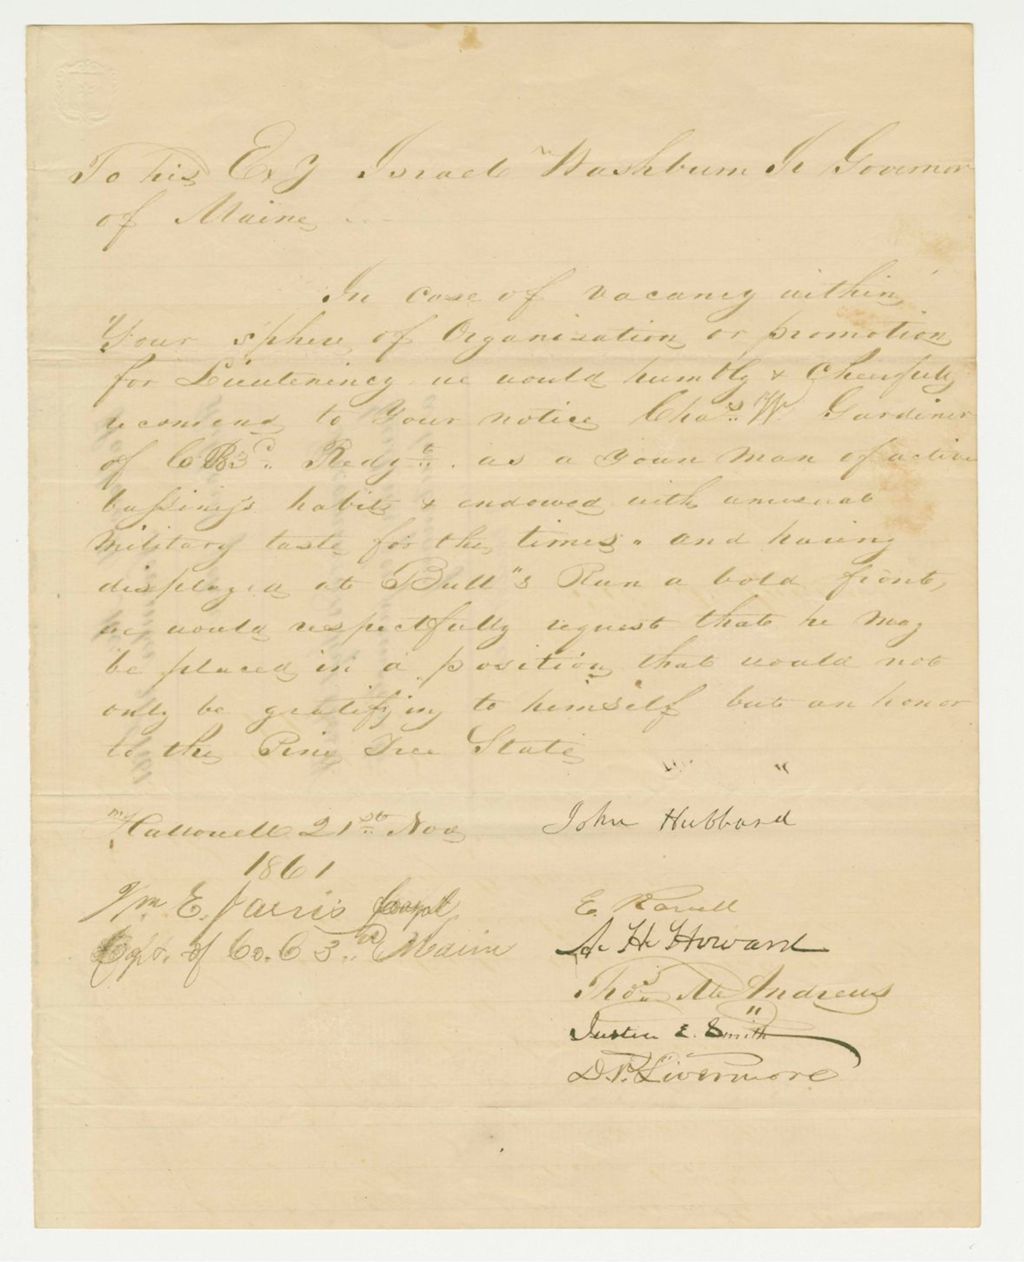 To his Exy Israel Washburn Jr Governor
of Maine
In case of vacancy within
Your sphere of Organisation or promotion
for Lieutenincy we would humbly & Cheerfully
recomend to Your notice Chas. W. Gardiner
of Co B 3d. Regt. as a Youn man of active
bussiney's habits & endowed with unusual
military taste for the times. and having
displayed at Bull"s Run a bold front,
we would respectfully request that he may
be placed in a position that would not
only be gratifying to himself but an honor
to the Pine Tree State
Hallowell 21st. Nov
1861
John Hubbard
Wm E. Jarvis Capt
Capt. of Co. C 3rd Maine
E. Rowell
A. H. Howard
Thos. Andrews
Justin E. Smith
D. P. Livermore